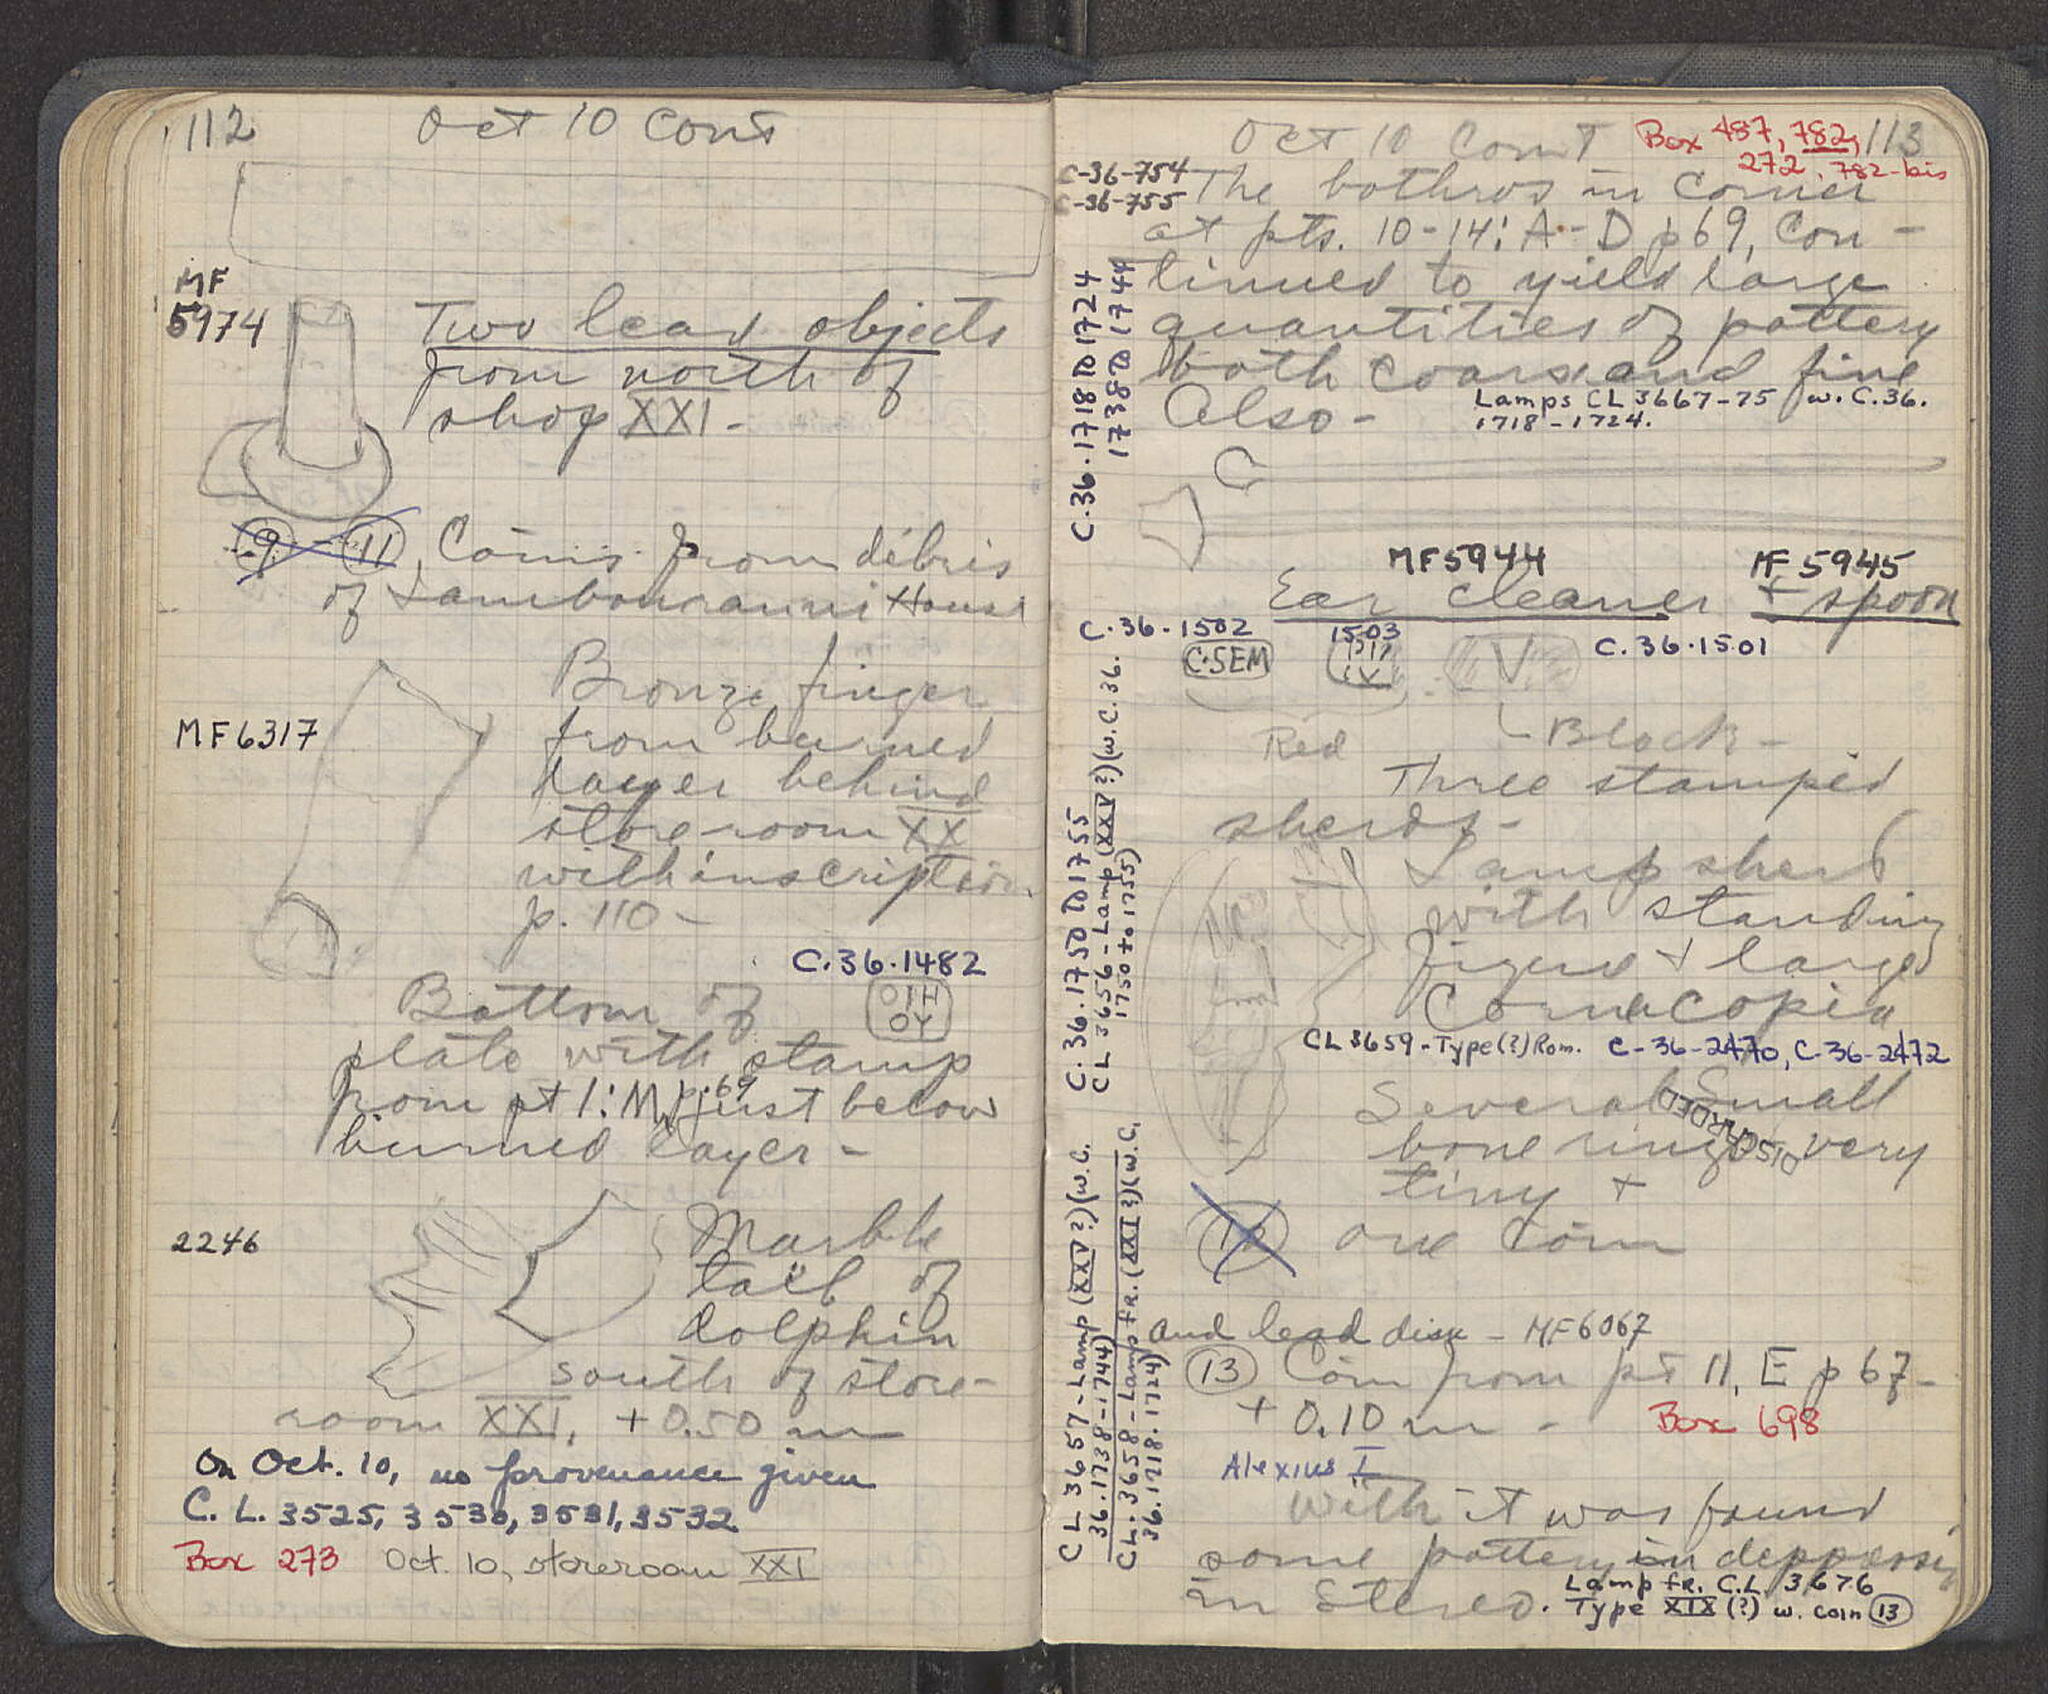 112 Oct 10 Cont
MF
5974
Two lead objects
from north of
shop XXI -
9 - 11, Coins from débris
of Lambouranni House
MF6317
Bronze finger
from burned
layer behind
storeroom XX
with inscription
p. 110 -
C.36.1482
Bottom of
OIH
OY
plate with stamp
from pt 1:M, p.69 just below
burned layer -
2246
Marble
tail of
dolphin
south of store-
room XXI, +0.50 m
On Oct. 10, no provenance given
C. L. 3525, 3530, 3531, 3532
Box 273 Oct. 10, storeroom XXI
Oct 10 Con't Box 487, 782, 113
272, 782-bis
C-36-754
C-36-755
The bothros in corner
at pts. 10-14: A-D p 69, con-
tinued to yield large
quantities of pottery
both coarse and fine
Also -
Lamps CL 3667-75 w. C.36.
1718-1724.
C.36.1718 to 1724
1738 to 1744
MF5944 MF 5945
Ear cleaner + spoon
C.36-1502 1503 C.36.1501
C.SEM
Red
Black -
Three stamped
sherds -
Lamp sherd
with standing
figure + large
Cornucopia
CL 3659 - Type(?) Rom. C-36-2470, C-36-2472
C.36.1750 to 1755
CL 3656 - Lamp (XXV?) (w. C.36.
1750 to 1755)
Several Small
bone rings very
DISCARDED
tiny +
one coin
and lead disk - MF6067
13 Coin from pt 11, E p 67 -
+ 0.10 m - Box 698
Alexius I
With it was found
some pottery in
in Stereo.
Lamp fr. C.L. 3676
Type XIX (?) w. coin 13
CL 3657 - Lamp (XXV?) (w. C.
36.1738-1744)
CL. 3658 - Lamp fr. (XXI?) (w. C.
36.1718-1724)